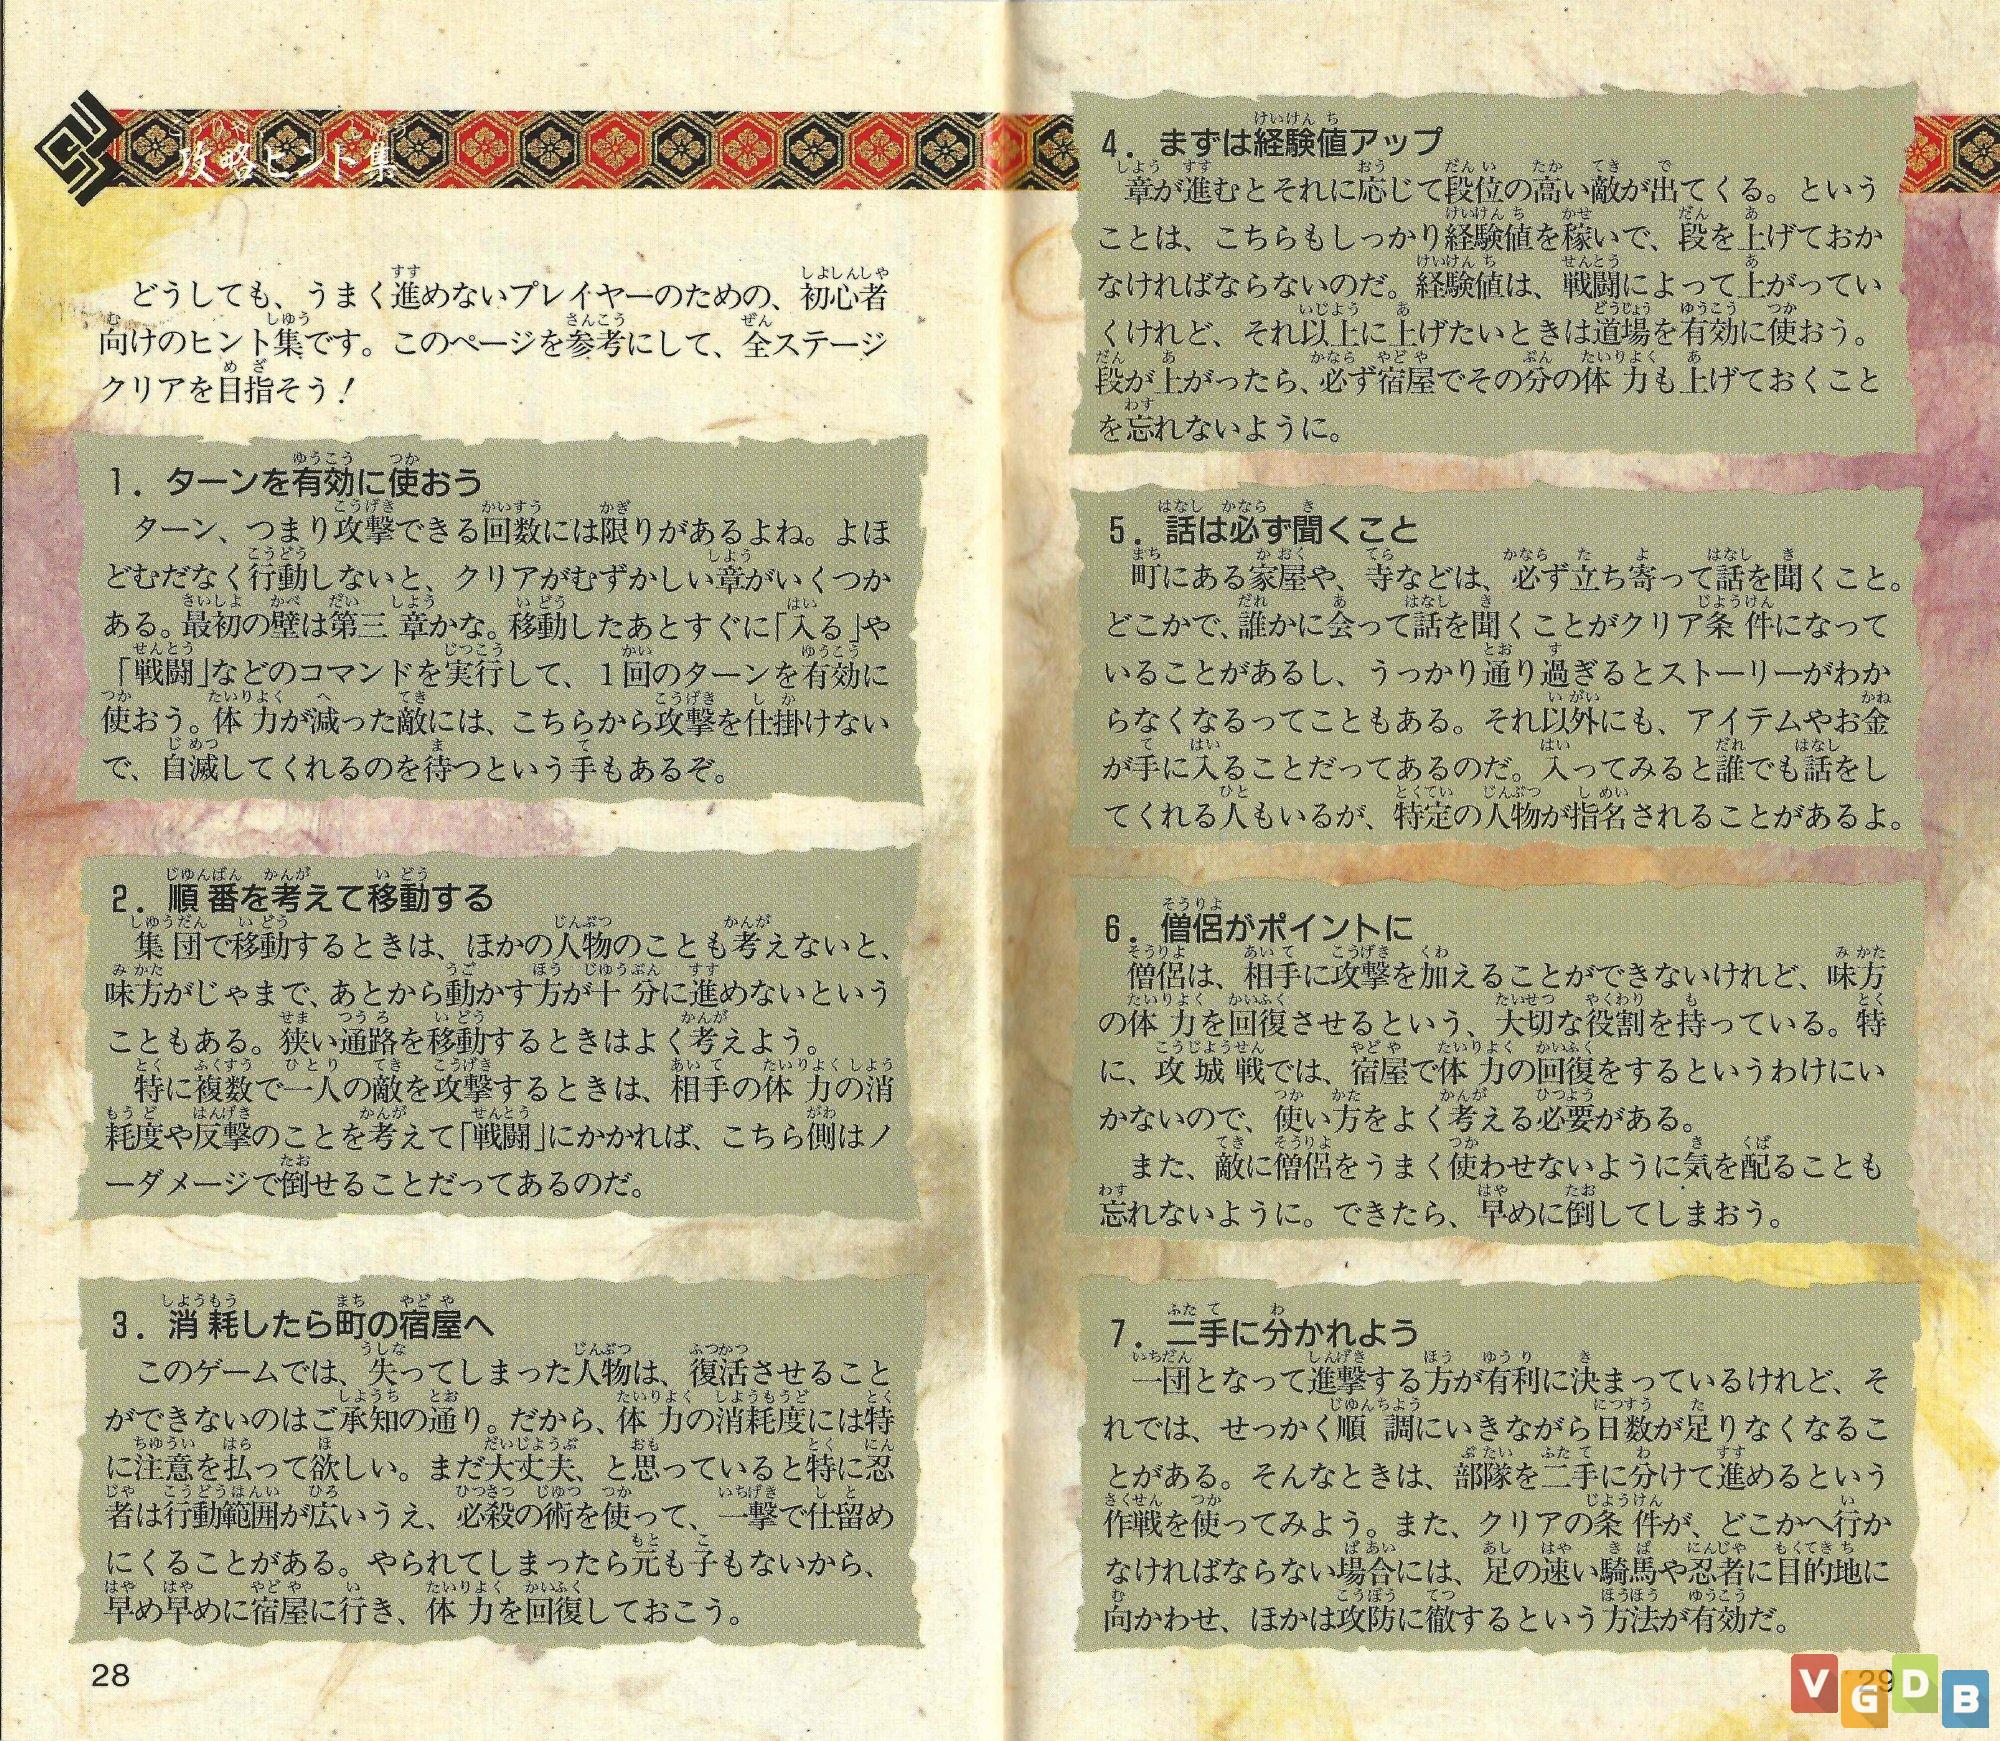 攻略ヒント集
どうしても、うまく進めないプレイヤーのための、初心者
向けのヒント集です。このページを参考にして、全ステージ
クリアを目指そう！
1．ターンを有効に使おう
ターン、つまり攻撃できる回数には限りがあるよね。よほ
どむだなく行動しないと、クリアがむずかしい章がいくつか
ある。最初の壁は第三章かな。移動したあとすぐに「入る」や
「戦闘」などのコマンドを実行して、1回のターンを有効に
使おう。体力が減った敵には、こちらから攻撃を仕掛けない
で、自滅してくれるのを待つという手もあるぞ。
2．順番を考えて移動する
集団で移動するときは、ほかの人物のことも考えないと、
味方がじゃまで、あとから動かす方が十分に進めないという
こともある。狭い通路を移動するときはよく考えよう。
特に複数で一人の敵を攻撃するときは、相手の体力の消
耗度や反撃のことを考えて「戦闘」にかかれば、こちら側はノ
ーダメージで倒せることだってあるのだ。
3．消耗したら町の宿屋へ
このゲームでは、失ってしまった人物は、復活させること
ができないのはご承知の通り。だから、体力の消耗度には特
に注意を払って欲しい。まだ大丈夫、と思っていると特に忍
者は行動範囲が広いうえ、必殺の術を使って、一撃で仕留め
にくることがある。やられてしまったら元も子もないから、
早め早めに宿屋に行き、体力を回復しておこう。
28
4．まずは経験値アップ
章が進むとそれに応じて段位の高い敵が出てくる。という
ことは、こちらもしっかり経験値を稼いで、段を上げておか
なければならないのだ。経験値は、戦闘によって上がってい
くけれど、それ以上に上げたいときは道場を有効に使おう。
段が上がったら、必ず宿屋でその分の体力も上げておくこと
を忘れないように。
5．話は必ず聞くこと
町にある家屋や、寺などは、必ず立ち寄って話を聞くこと。
どこかで、誰かに会って話を聞くことがクリア条件になって
いることがあるし、うっかり通り過ぎるとストーリーがわか
らなくなるってこともある。それ以外にも、アイテムやお金
が手に入ることだってあるのだ。入ってみると誰でも話をし
てくれる人もいるが、特定の人物が指名されることがあるよ。
6．僧侶がポイントに
僧侶は、相手に攻撃を加えることができないけれど、味方
の体力を回復させるという、大切な役割を持っている。特
に、攻城戦では、宿屋で体力の回復をするというわけにい
かないので、使い方をよく考える必要がある。
また、敵に僧侶をうまく使わせないように気を配ることも
忘れないように。できたら、早めに倒してしまおう。
7．二手に分かれよう
一団となって進撃する方が有利に決まっているけれど、そ
れでは、せっかく順調にいきながら日数が足りなくなるこ
とがある。そんなときは、部隊を二手に分けて進めるという
作戦を使ってみよう。また、クリアの条件が、どこかへ行か
なければならない場合には、足の速い騎馬や忍者に目的地に
向かわせ、ほかは攻防に徹するという方法が有効だ。
29
VGDB